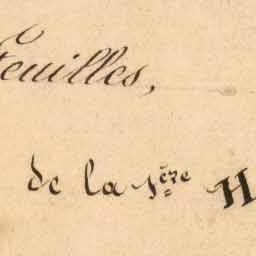 Feuilles,
de la 1ère H